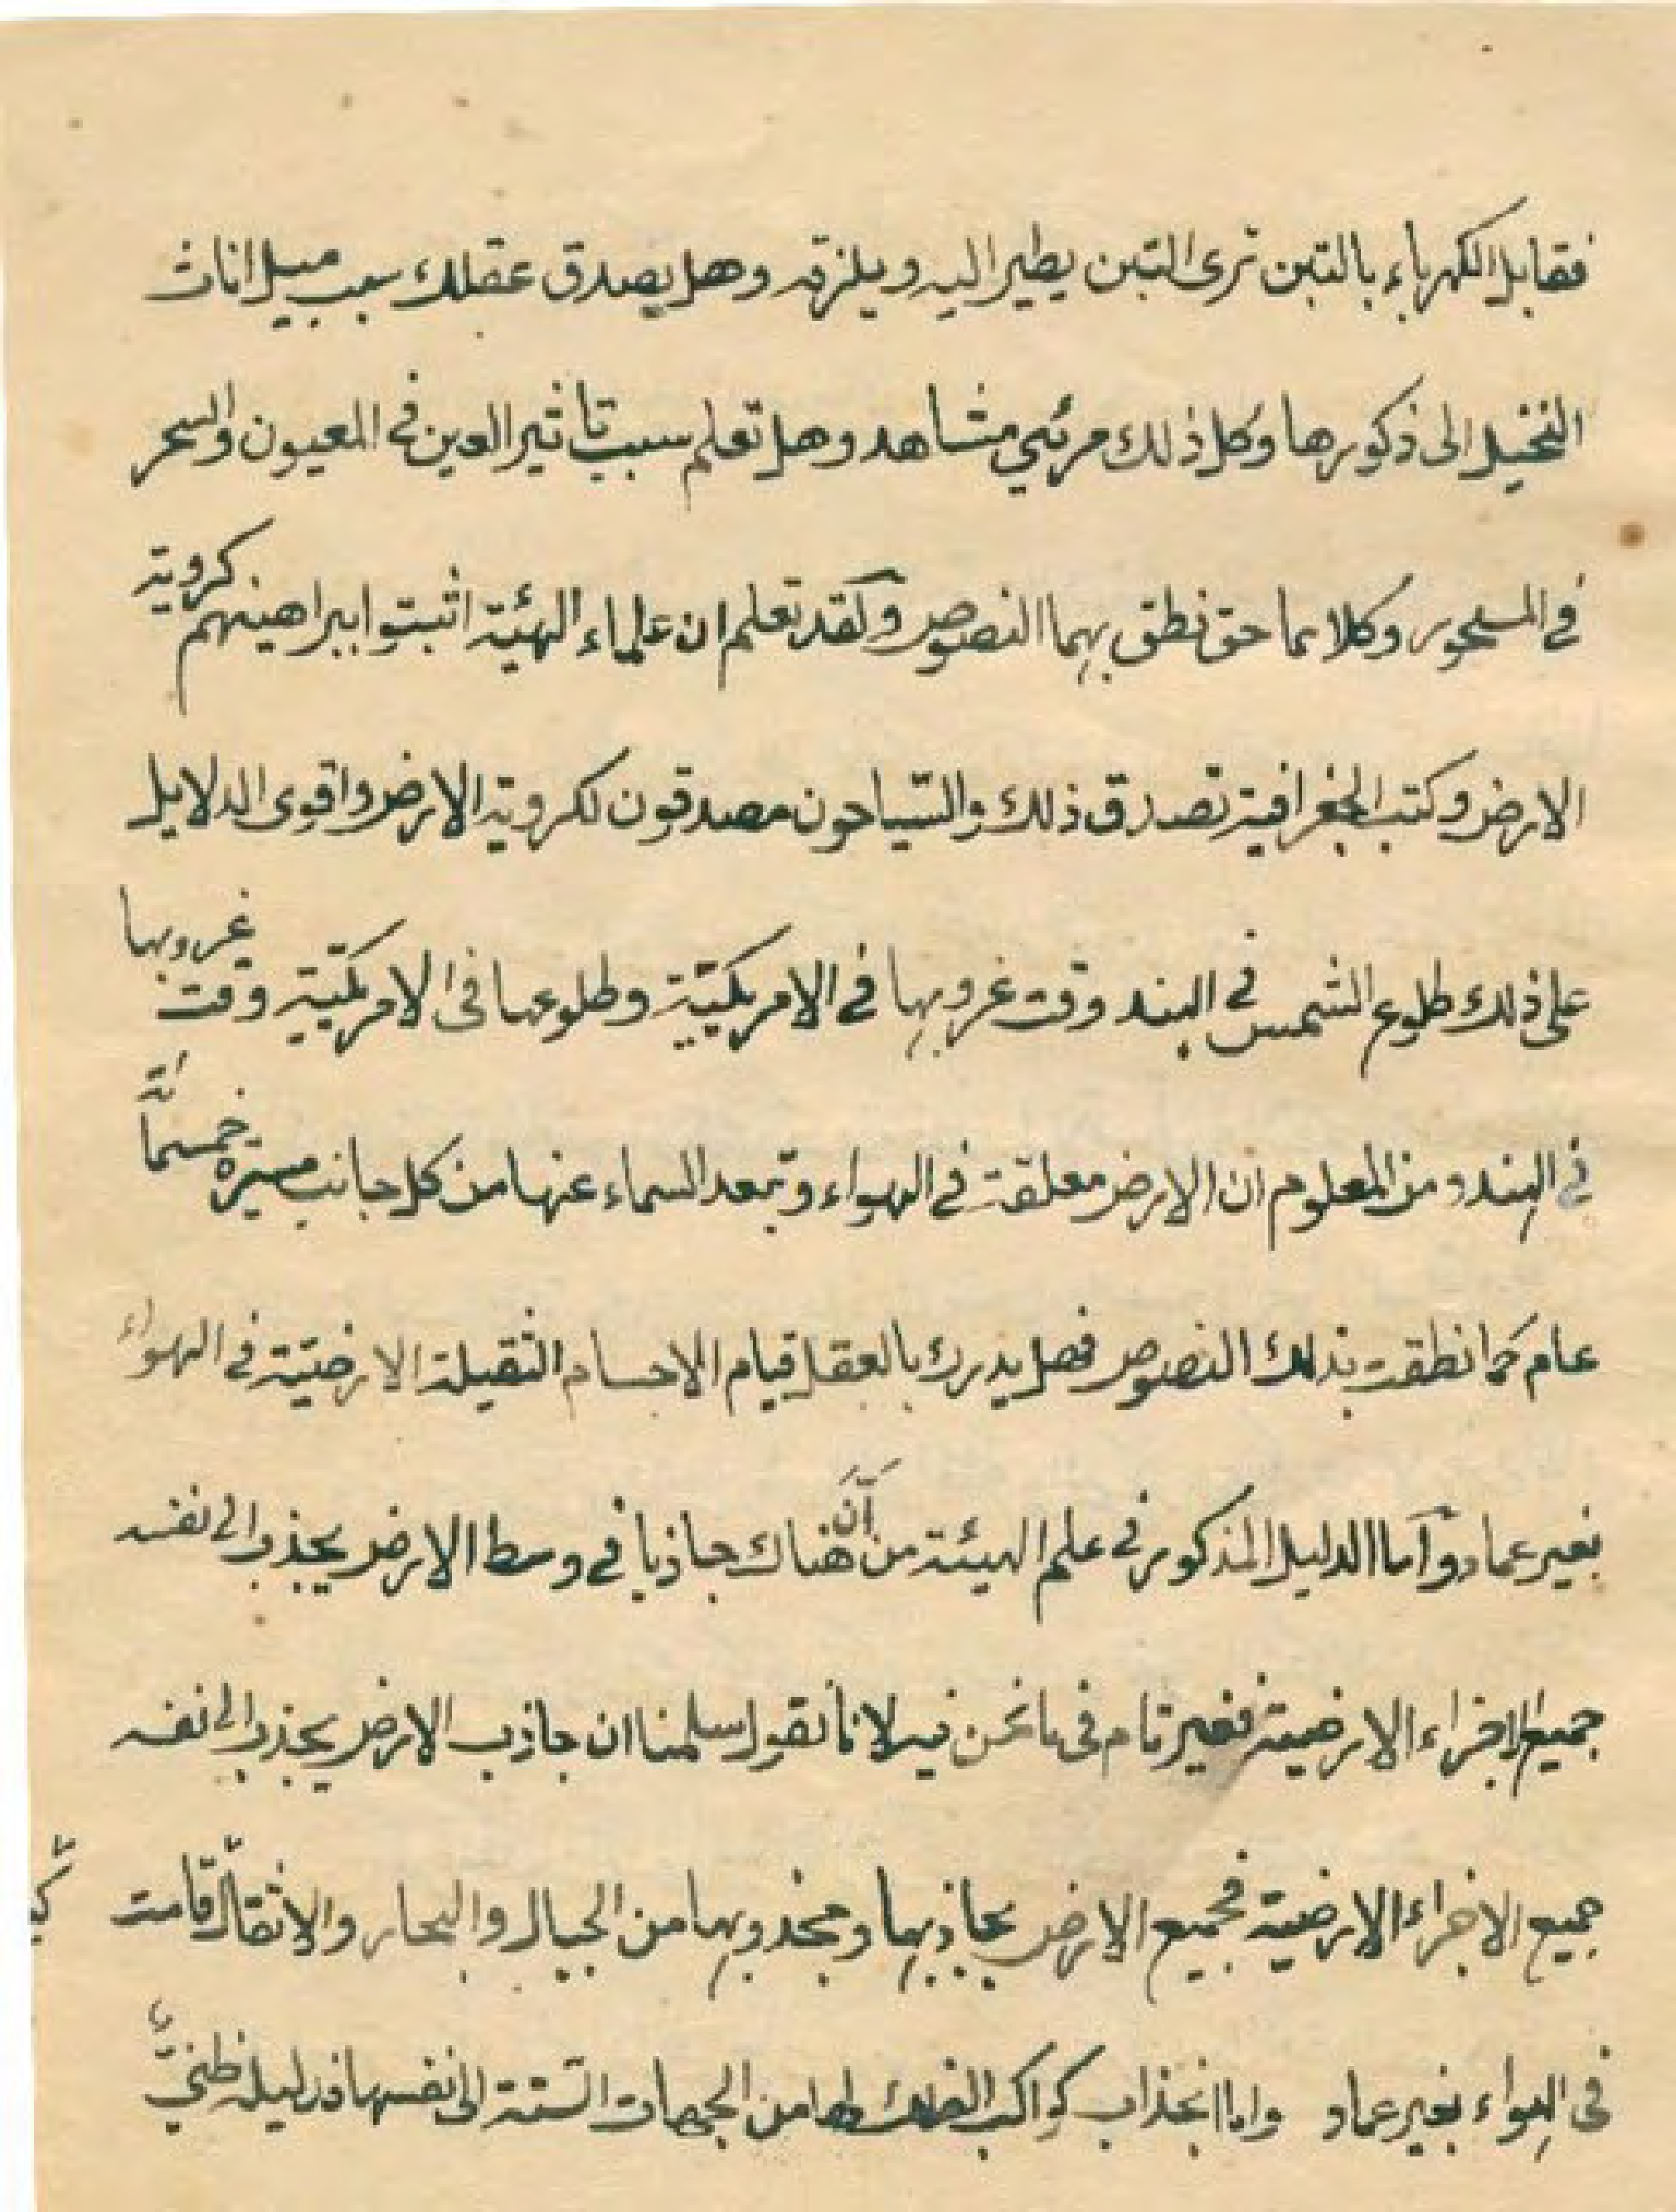 فقابل الكهرباء بالتبن ترى التبن يطير اليه ويلزقه وهل يصدق عقلك سبب ميل اناث
النخيل الى ذكورها وكل ذلك مرئي مشاهد وهل تعلم سبب تاثير العين في المعيون والسحر
في المسحور وكلاهما حق نطق بهما النصوص ولقد تعلم ان علماء الهيئة اثبتوا ببراهينهم كروية
الارض وكتب الجغرافية تصدق ذلك والسياحون مصدقون لكروية الارض واقوى الدلايل
على ذلك طلوع الشمس في الهند وقت غروبها في الامريكية وطلوعها في الامريكية وقت غروبها
في الهند ومن المعلوم ان الارض معلقة في الهواء وتبعد السماء عنها من كل جانب مسيرة خمسمائة
عام كما نطقت بذلك النصوص فهل يدرك بالعقل قيام الاجسام الثقيلة الارضية في الهواء
بغير عماد وآما الدليل المذكور في علم الهيئة من أنَّ هناك جاذبا في وسط الارض يجذب الى نفسه
جميع الاجزاء الارضية فغير تام في ما نحن فيه لانا نقول سلمنا ان جاذب الارض يجذب الى نفسه
جميع الاجزاء الارضية فجميع الارض بجاذبها ومجذوبها من الجبال والبحار والاثقال قامت
في الهواء بغير عماد واما انجذاب كواكب الفلك لها من الجهات الستة الى نفسها فدليله ظنيٌّ